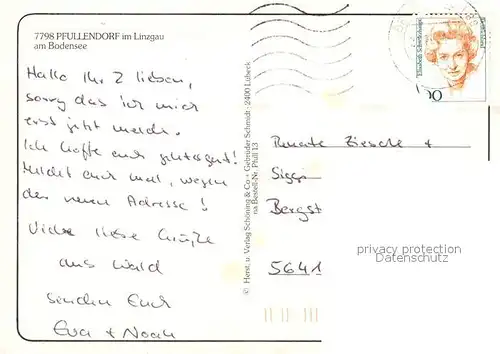 7798 PFULLENDORF im Linzgau
am Bodensee
Hallo Ihr 2 lieben,
sorry das ich mich
erst jetzt melde.
Ich hoffe euch geht's gut!
Meldet euch mal, wegen
der neuen Adresse!
Viele liebe Grüße
aus Wald
senden Euch
Eva + Noah
© Horst. u. Verlag Schöning & Co + Gebrüder Schmidt · 2400 Lübeck
na Bestell-Nr. Pfull 13
Renate Ziesche +
Siggi
Bergst
5641
privacy protection
Datenschutz